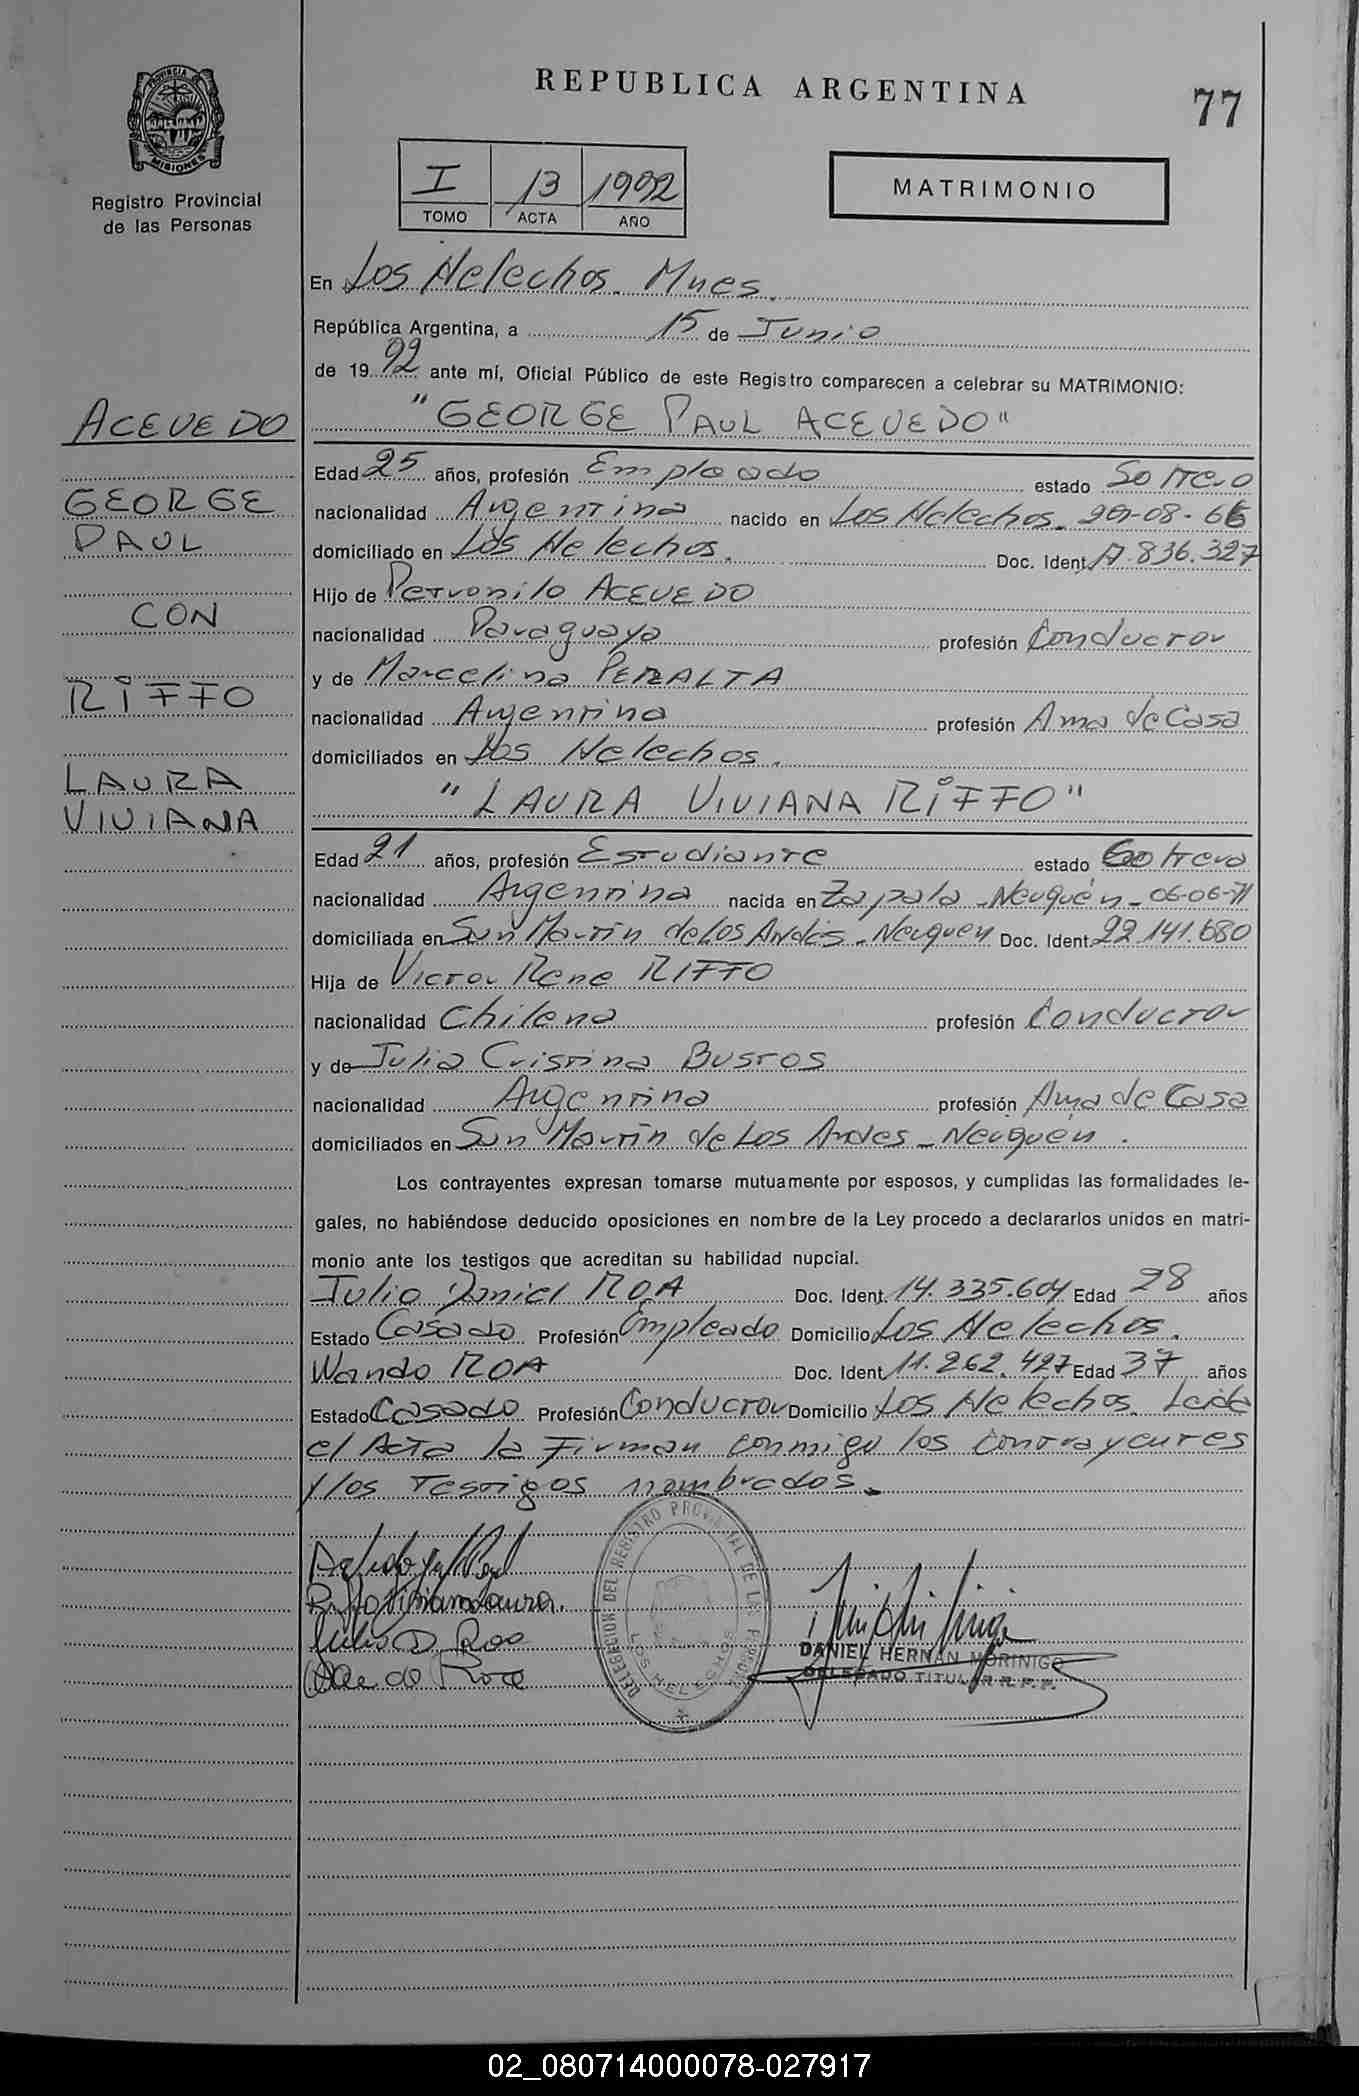 REPUBLICA ARGENTINA
77
PROVINCIA DE
MISIONES
Registro Provincial
de las Personas
I 13 1992
TOMO ACTA AÑO
MATRIMONIO
En Los Helechos. Mnes.
República Argentina, a 15 de Junio
de 19 92 ante mí, Oficial Público de este Registro comparecen a celebrar su MATRIMONIO:
"GEORGE PAUL ACEVEDO"
ACEVEDO
GEORGE
PAUL
CON
RIFFO
LAURA
VIVIANA
Edad 25 años, profesión Empleado estado Soltero
nacionalidad Argentina nacido en Los Helechos. 29-08-66
domiciliado en Los Helechos. Doc. Ident. 17.836.327
Hijo de Petronilo ACEVEDO
nacionalidad Paraguaya profesión Conductor
y de Marcelina PERALTA
nacionalidad Argentina profesión Ama de Casa
domiciliados en Los Helechos.
"LAURA VIVIANA RIFFO"
Edad 21 años, profesión Estudiante estado Soltera
nacionalidad Argentina nacida en Zapala - Neuquén - 06-06-71
domiciliada en San Martín de Los Andes - Neuquén Doc. Ident. 22.141.680
Hija de Victor Rene RIFFO
nacionalidad Chilena profesión Conductor
y de Julia Cristina BUSTOS
nacionalidad Argentina profesión Ama de Casa
domiciliados en San Martín de Los Andes - Neuquén.
Los contrayentes expresan tomarse mutuamente por esposos, y cumplidas las formalidades le-
gales, no habiéndose deducido oposiciones en nombre de la Ley procedo a declararlos unidos en matri-
monio ante los testigos que acreditan su habilidad nupcial.
Julio Daniel ROA Doc. Ident. 14.335.604 Edad 28 años
Estado Casado Profesión Empleado Domicilio Los Helechos.
Wando ROA Doc. Ident. 11.262.427 Edad 37 años
Estado Casado Profesión Conductor Domicilio Los Helechos. Leida
el Acta la Firman conmigo los contrayentes
y los Testigos nombrados.
Riffo Viviana Laura.
Julio D. Roa
DELEGACION DEL REGISTRO PROVINCIAL DE LAS PERSONAS
LOS HELECHOS
DANIEL HERNAN MORINIGO
DELEGADO TITULAR R.P.P.
02_080714000078-027917